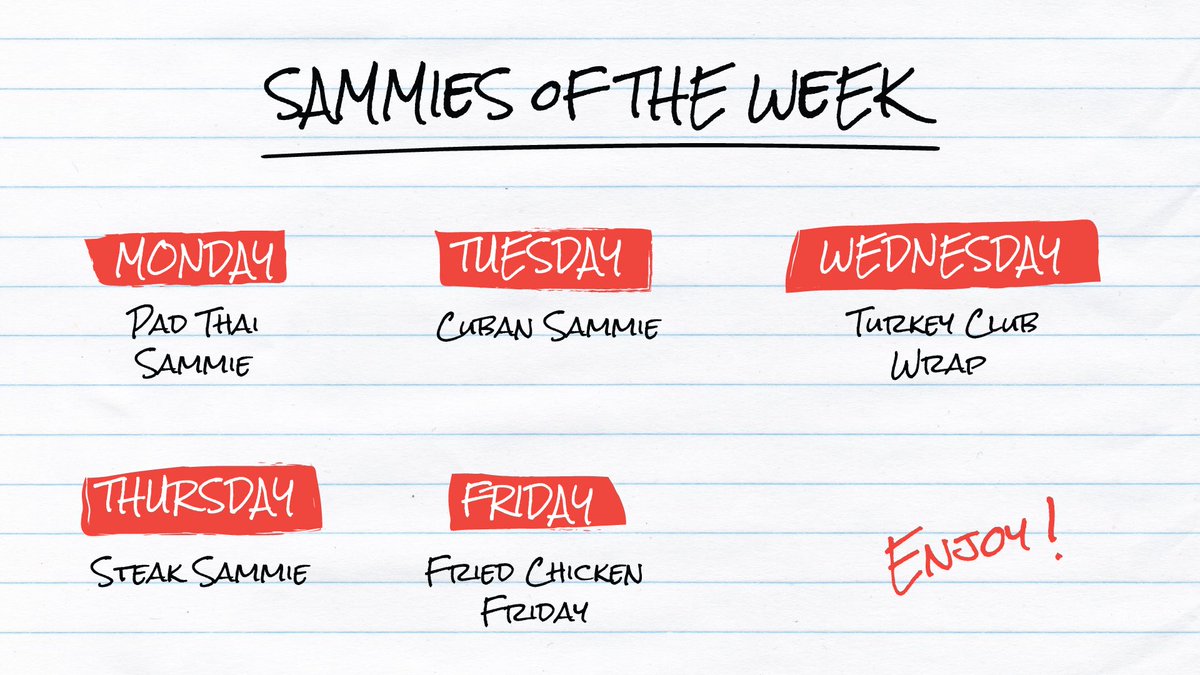 SAMMIES OF THE WEEK
MONDAY
PAD THAI
SAMMIE
TUESDAY
CUBAN SAMMIE
WEDNESDAY
TURKEY CLUB
WRAP
THURSDAY
STEAK SAMMIE
FRIDAY
FRIED CHICKEN
FRIDAY
ENJOY!